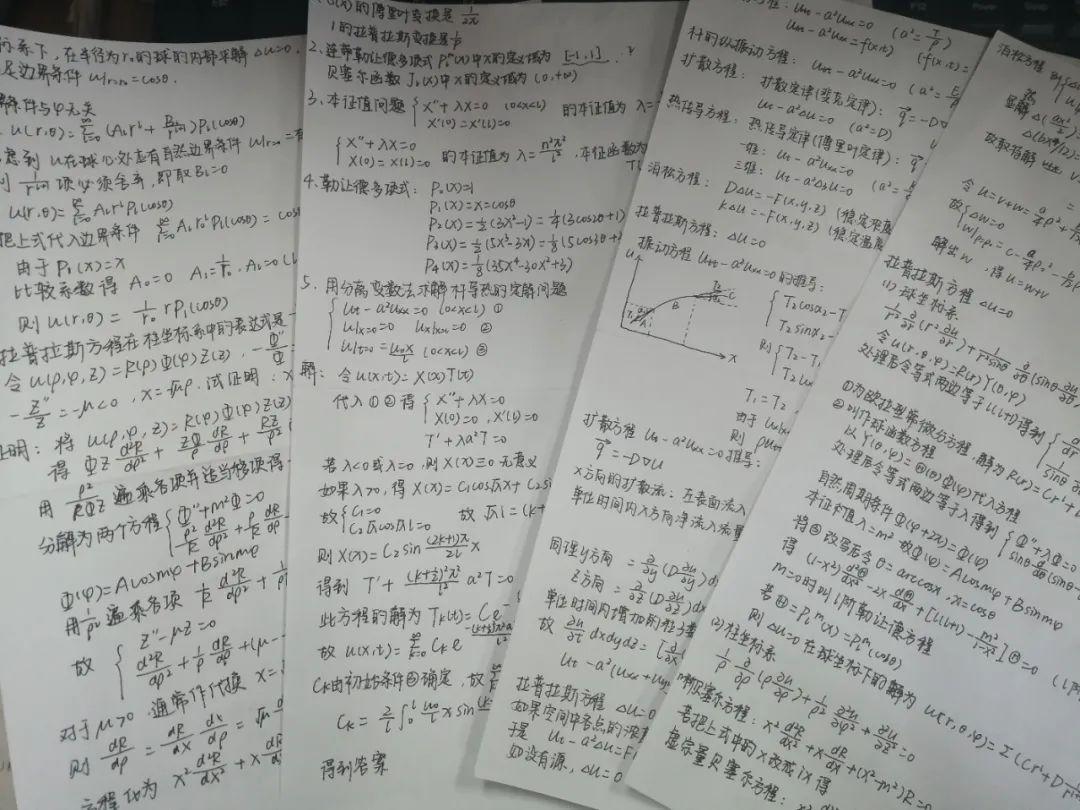 坐标系下,在半径为r₀的球的内部求解 Δu=0,
足边界条件 u|r=r₀=cosθ.
解条件与φ无关
u(r,θ)=Σ(Aₗrˡ+Bₗ/rˡ⁺¹)Pₗ(cosθ)
虑到 u在球心处应有自然边界条件 u|r=0=有
则 项必须舍弃,即取Bₗ=0
u(r,θ)=ΣAₗrˡPₗ(cosθ)
把上式代入边界条件 ΣAₗr₀ˡPₗ(cosθ)=cosθ
由于 P₁(x)=x
比较系数得 A₀=0 A₁=1/r₀, Aₗ=0
则 u(r,θ)=1/r₀ rP₁(cosθ)
拉普拉斯方程在柱坐标系中的表达式是
令u(ρ,φ,z)=R(ρ)Φ(φ)Z(z), -Φ″/Φ
-Z″/Z=-μ<0, x=√μρ.试证明:x
证明:将 u(ρ,φ,z)=R(ρ)Φ(φ)Z(z)
得 ΦZ d²R/dρ²+ZΦ/ρ dR/dρ+RZ/ρ²
用 ρ²/RΦZ 遍乘各项并适当移项得
分解为两个方程{Φ″+m²Φ=0
ρ²/R d²R/dρ²+ρ/R dR/dρ
Φ(φ)=Acosmφ+Bsinmφ
用1/ρ²遍乘各项 1/R d²R/dρ²+
故 {Z″-μZ=0
d²R/dρ²+1/ρ dR/dρ+(μ-
对于μ>0,通常作代换 x=
则 dR/dρ=dR/dx dx/dρ=√μ
方程化为 x²d²R/dx²+x
的傅里叶变换是 1/2π
1的拉普拉斯变换是1/p
2.连带勒让德多项式Pₗᵐ(x)中x的定义域为 [-1,1].
贝塞尔函数 Jₙ(x)中x的定义域为(0,+∞)
3.本征值问题 {X″+λX=0 (0<x<l) 的本征值为 λ=
X′(0)=X′(l)=0
{X″+λX=0
X(0)=X(l)=0 的本征值为 λ=n²π²/l², 本征函数为
4.勒让德多项式: P₀(x)=1
P₁(x)=x=cosθ
P₂(x)=1/2(3x²-1)=1/4(3cos2θ+1)
P₃(x)=1/2(5x³-3x)=1/8(5cos3θ+3
P₄(x)=1/8(35x⁴-30x²+3)
5.用分离变数法求解杆导热的定解问题
{uₜ-a²uₓₓ=0 (0<x<l) ①
u|x=0=0 uₓ|x=l=0 ②
u|t=0=u₀x/l (0<x<l) ③
解: 令u(x,t)=X(x)T(t)
代入①②得{X″+λX=0
X(0)=0, X′(l)=0
T′+λa²T=0
若λ<0或λ=0,则X(x)≡0 无意义
如果λ>0,得 X(x)=C₁cos√λx+C₂si
故{C₁=0
C₂√λcos√λl=0 故√λl=(k+
则X(x)=C₂sin (2k+1)π/2l x
得到 T′+(k+1/2)²π²/l² a²T=0
此方程的解为 Tₖ(t)=Ce
故u(x,t)=ΣCₖe
Cₖ由初始条件③确定,故
Cₖ=2/l∫₀ˡ u₀/l x sin
得到答案
方程: uₜₜ-a²uₓₓ=0 (a²=T/ρ)
uₜₜ-a²uₓₓ=f(x,t) (f(x,t)=
杆的纵振动方程: uₜₜ-a²uₓₓ=0 (a²=E/ρ
扩散方程: 扩散定律(斐克定律): q=-D∇
uₜ-a²Δu=0 (a²=D)
热传导方程: 热传导定律(傅里叶定律): q
一维: uₜ-a²uₓₓ=0 (a²=
三维: uₜ-a²Δ₃u=0
泊松方程: DΔu=-F(x,y,z) (稳定浓度
kΔu=-F(x,y,z) (稳定温度
拉普拉斯方程: Δu=0
振动方程 uₜₜ-a²uₓₓ=0的推导:
u
B
C
A
x
{T₂cosα₂-T
T₂sinα₂-
则{T₂-T₁
T₂u
T₁=T₂
由于
则 ρu
扩散方程 uₜ-a²uₓₓ=0推导:
q=-D∇u
x方向的扩散流:左表面流入
单位时间内x方向净流入流量
同理y方向 =∂/∂y(D∂u/∂y)d
z方向=∂/∂z(D∂u/∂z)dx
单位时间内增加的粒子数
故 ∂u/∂t dxdydz=[∂/∂x
uₜ-a²(uₓₓ+u
拉普拉斯方程 Δu=0
如果空间中各点的浓度
于是 uₜ-a²Δu=F
如没有源, Δu=0
泊松方程
显解 Δ(ax²/2)=
Δ(bx⁴/12)=
故取特解 v
令u=v+w=a/4ρ²+
故{Δw=0
w|ρ=ρ₀=c-a/4ρ₀²-
解出w, 得u=v+w
拉普拉斯方程 Δu=0
(1)球坐标系
1/r² ∂/∂r(r²∂u/∂r)+1/r²sinθ ∂/∂θ(sinθ∂u/∂θ
令u(r,θ,φ)=R(r)Y(θ,φ)
处理后令等式两边等于l(l+1)得到{
①为欧拉型常微分方程,解为R(r)=Crˡ+
②叫作球函数方程
以Y(θ,φ)=Θ(θ)Φ(φ)代入方程
处理后令等式两边等于λ得到{Φ″+λΦ=0
自然周期条件 Φ(φ+2π)=Φ(φ)
本征值λ=m² 故Φ(φ)=Acosmφ+Bsinmφ
将④改写后令θ=arccosx,x=cosθ
得 (1-x²)d²Θ/dx²-2x dΘ/dx+[l(l+1)-m²/(1-x²)]Θ=0
m=0时叫l阶勒让德方程
若Θ=Pₗᵐ(x)=Pₗᵐ(cosθ)
则 Δu=0在球坐标下的解为 u(r,θ,φ)=Σ(Crˡ+D
(2)柱坐标系
1/ρ ∂/∂ρ(ρ∂u/∂ρ)+1/ρ² ∂²u/∂φ²+∂²u/∂z²=0
贝塞尔方程: x²d²R/dx²+x dR/dx+(x²-m²)R=0
若把上式中的x改成ix得
虚宗量贝塞尔方程: